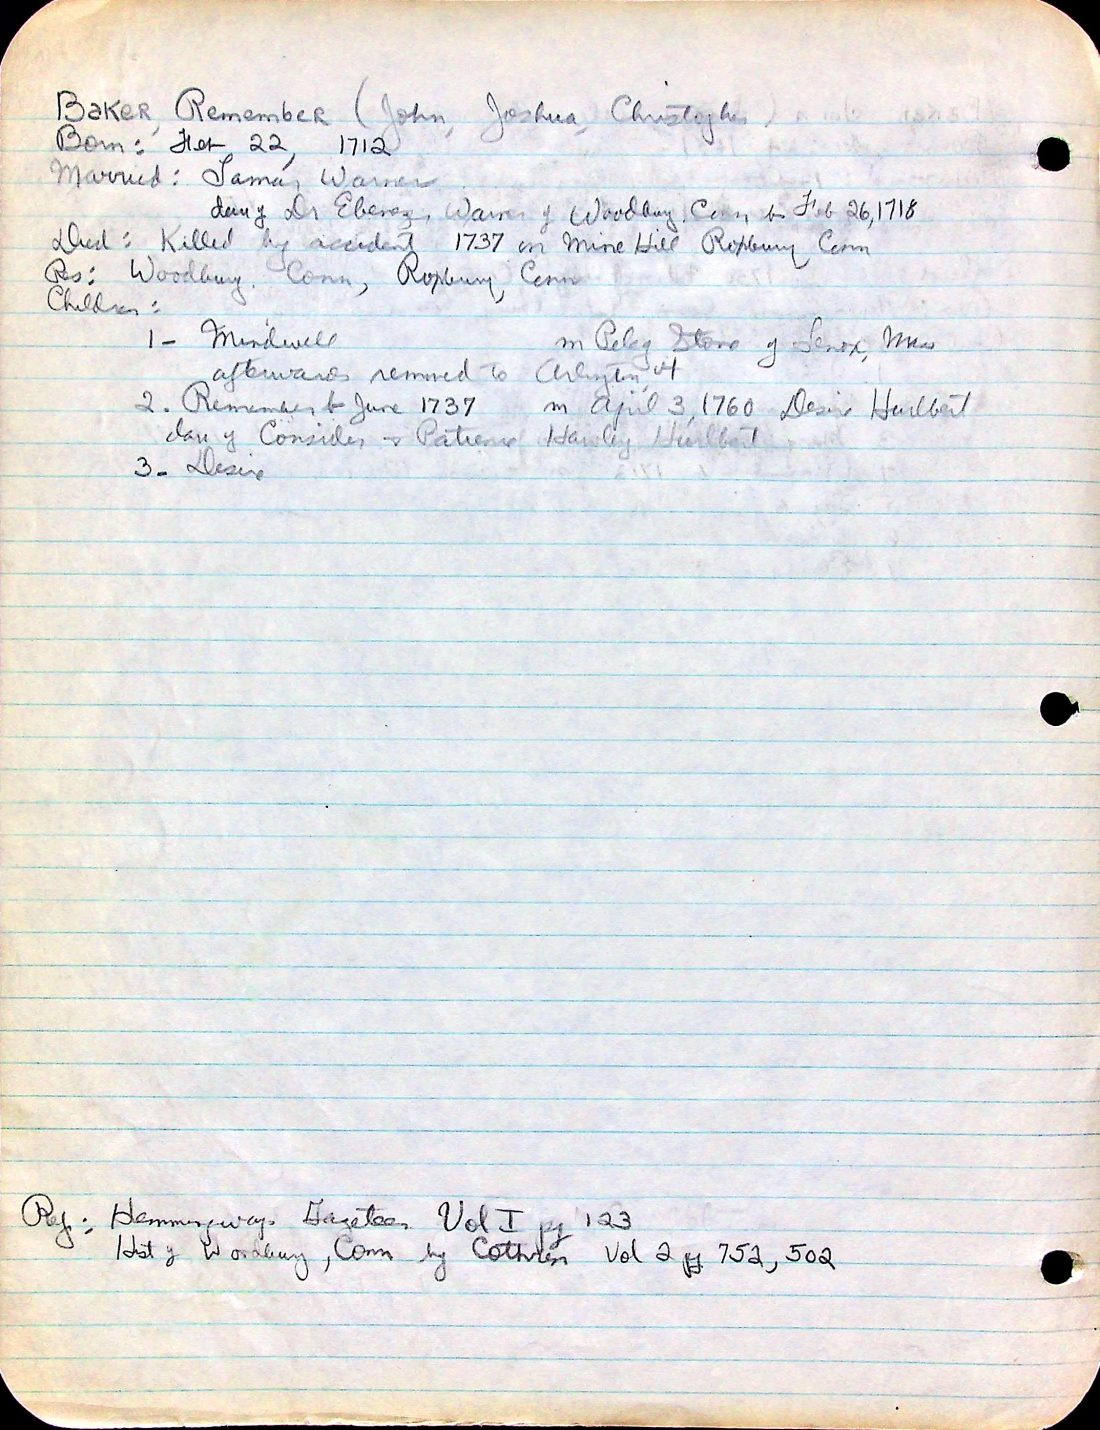 Baker, Remember (John, Joshua, Christopher)
Born: Feb 22, 1712
Married: Tamar Warner
dau of Dr Ebenezer Warner of Woodbury, Conn b Feb 26, 1718
Died: Killed by accident 1737 on Mine Hill Roxbury Conn
Res: Woodbury, Conn, Roxbury, Conn
Children:
1- Mindwell m Peleg Stone of Lenox, Mass
afterwards removed to Arlington, Vt
2. Remember b June 1737 m April 3, 1760 Desire Hurlbert
dau of Consider & Patience Hawley Hurlbert
3- Desire
Ref: Hemmingways Gazeteer Vol I pg 123
Hist of Woodbury, Conn by Cothren Vol 2 pg 752, 502